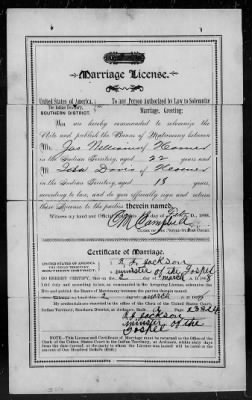 Marriage License.
United States of America,
The Indian Territory,
SOUTHERN DISTRICT.
To any Person Authorized by Law to Solemnize
Marriage, Greeting:
You are hereby commanded to solemnize the
Rite and publish the Banns of Matrimony between
Mr. Jas of
in the Indian Territory, aged 22 years and
M Davis of
in the Indian Territory, aged 18 years,
according to law, and do you officially sign and return
this License to the parties therein named.
Witness my hand and Official
CM Campbell
Clerk of the United States Court
Certificate of Marriage.
UNITED STATES OF AMERICA,
THE INDIAN TERRITORY,
SOUTHERN DISTRICT.
Jackson
minister of the Gospel
DO HEREBY CERTIFY, that on the 2 day of March
duly and according to law, as commanded in the foregoing License, solemnize
the Rite and publish the Banns of Matrimony between the parties therein named.
Witness my hand this 2 day of March
My credentials are recorded in the office of the Clerk of the United States Court,
Indian Territory, Southern District, at Ardmore, Book
Jackson
minister of the
Gospel
NOTE.—This License and Certificate of Marriage must be returned to the office of the
Clerk of the United States Court in the Indian Territory, at Ardmore, within sixty days
from the date thereof, or the party to whom the License was issued will be liable in the
amount of One Hundred Dollars ($100).